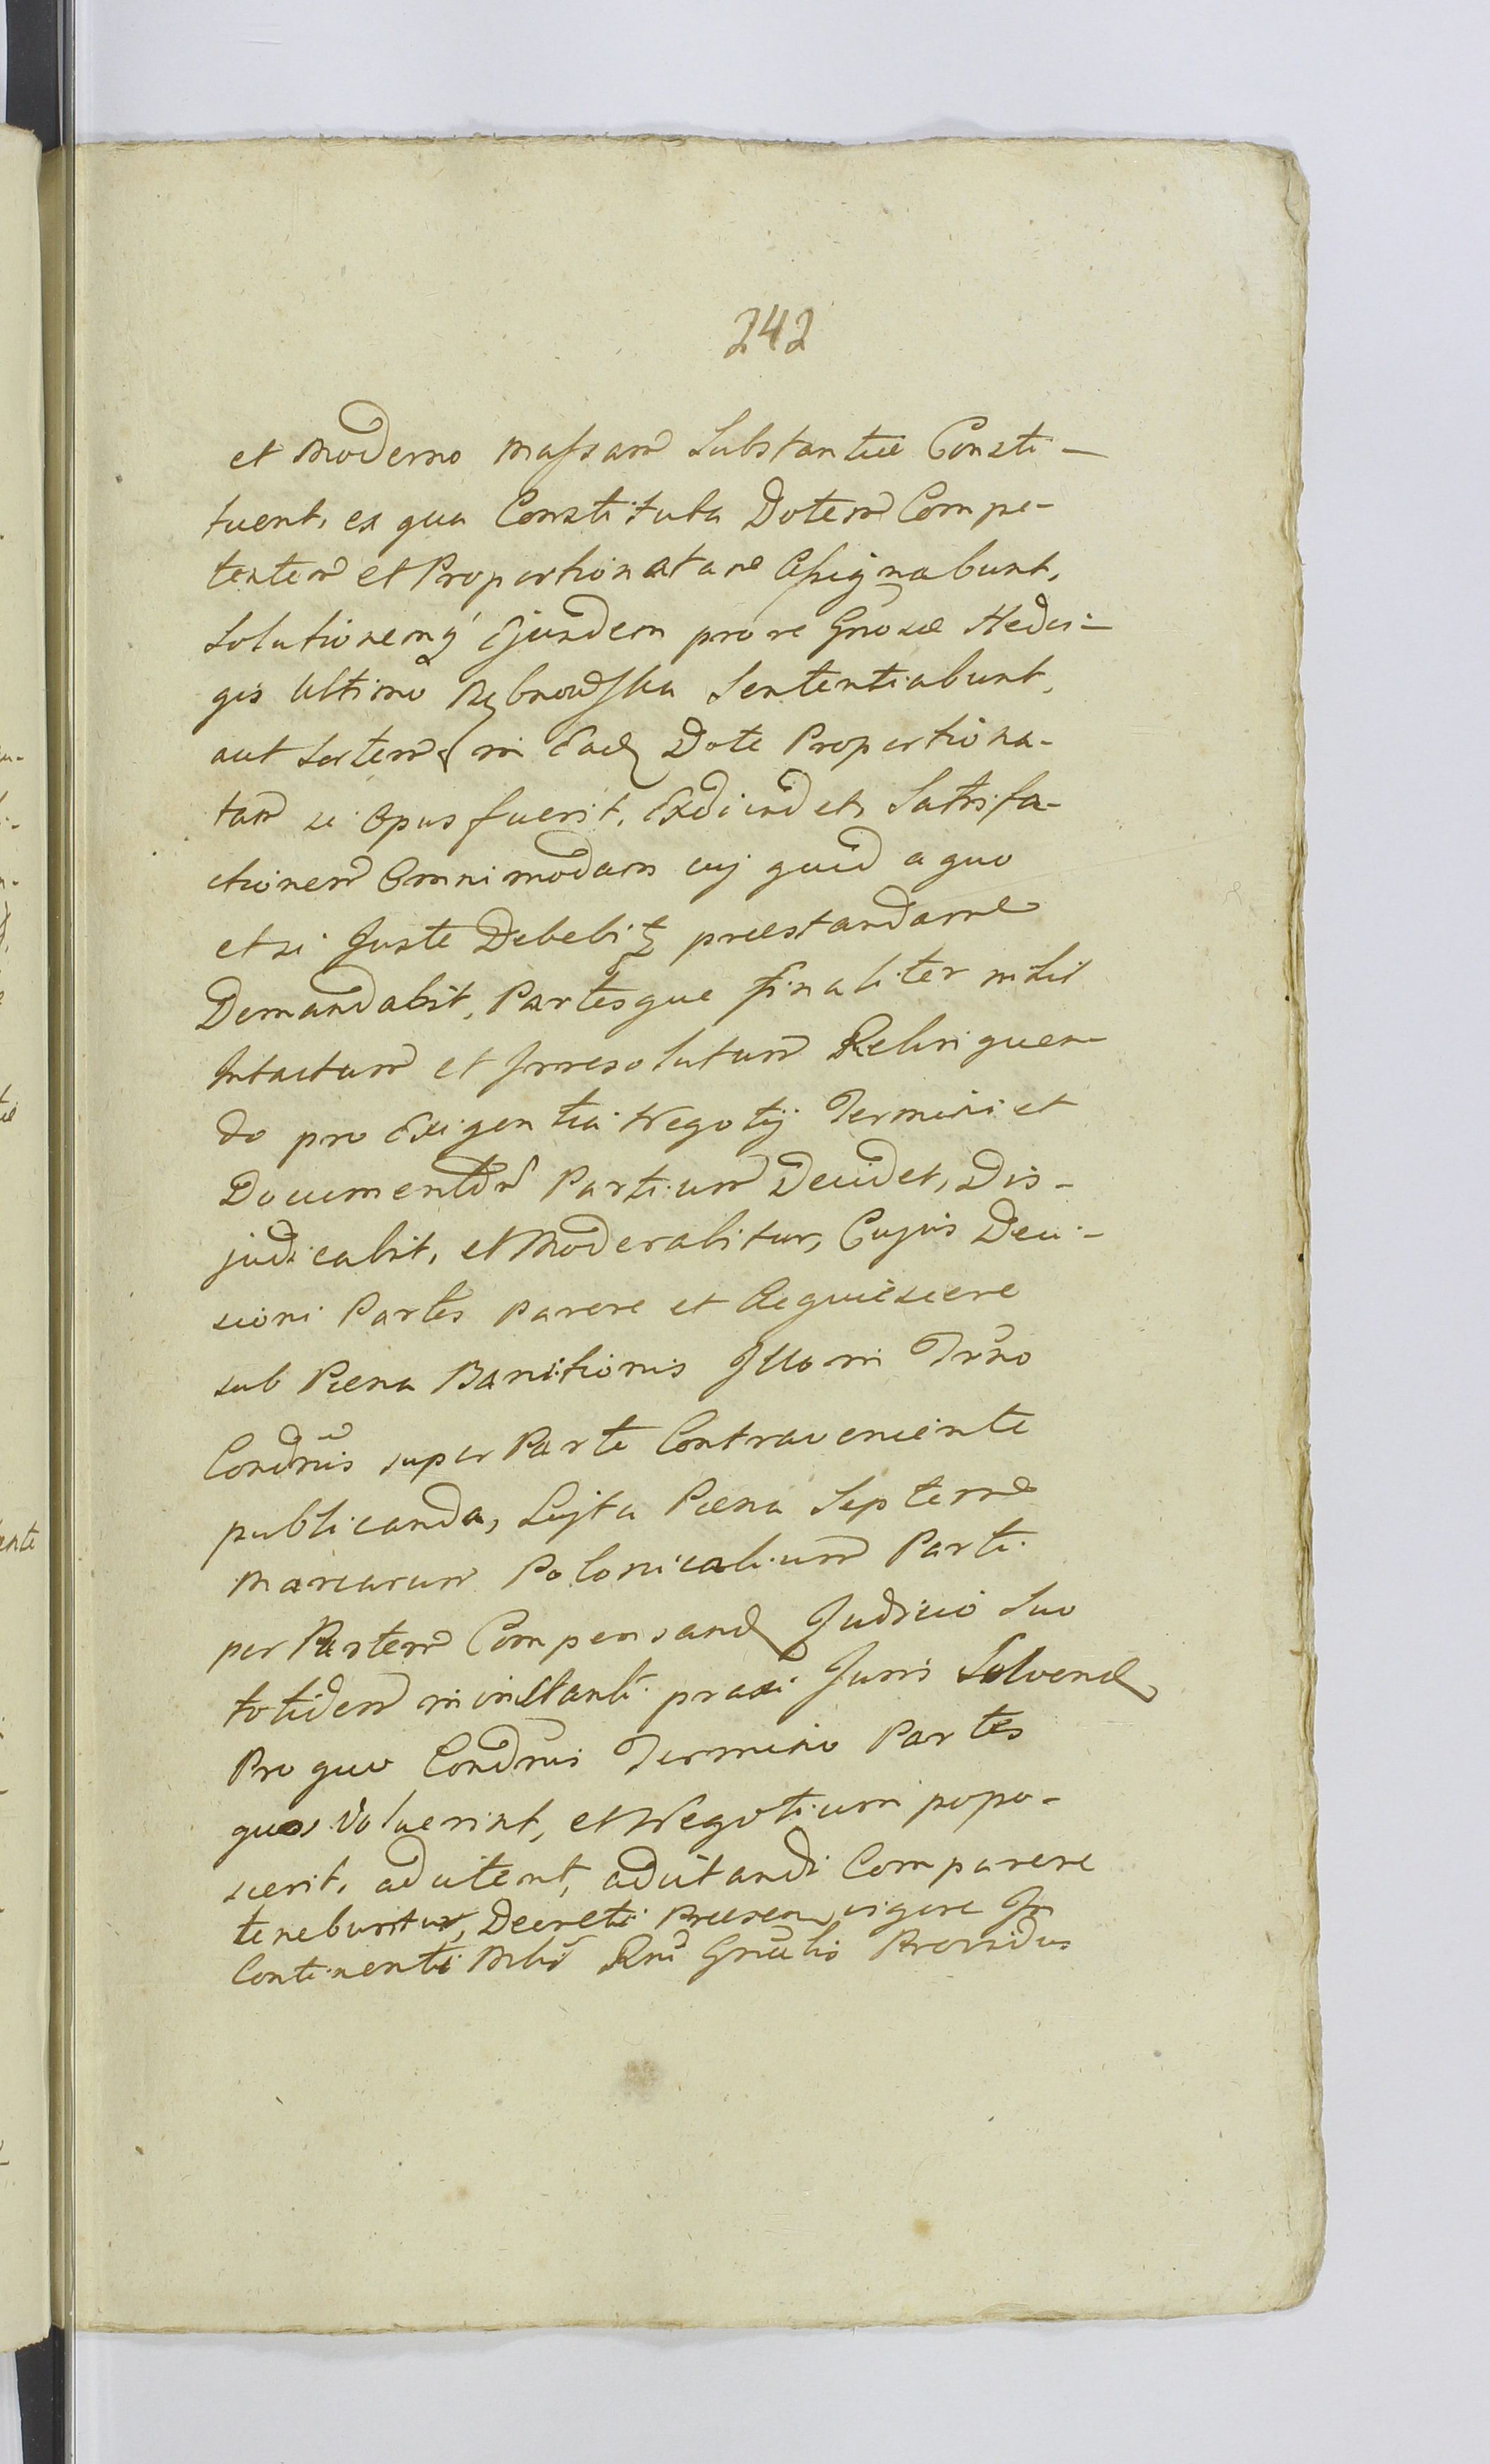 242
et Moderno Massam Substantiæ Consti-
tuent, ex qua Constituta Dotem Compe-
tentem et Proportionatam Assignabunt,
Solutionemq́ Ejusdem pro re Gnosæ Hedvi-
gis Ultimo Sententiabunt,
aut Sortem in Ead Dote Proportiona-
tam si Opus fuerit, et Satisfa-
ctionem Omnimodam cuj quid a quo
et si Juste Debebitz præstandam
Demandabit, Partesque finaliter nihil
Intactum et Irresolutum Relinquen-
do pro Exigentia Negotij Termini et
Documentor Partium Decidet, Dis-
judicabit, et Moderabitur, Cujus Deci-
sioni Partes parere et Acquiescere
sub Pœna Banitionis Illo in Trno
Condnis super Parte Contraveniente
publicanda, Luita Pæna Septem
Marcarum Polonicalium Parti
per Partem Compensand Judicio Suo
totidem in instanti praxi Juris Solvend
Pro quo Condnis Termino Partes
quos voluerint, et Negotium popo-
scerit, adcitent, adcitandi Comparere
tenebuntur, Decreti Præsen vigore In
Continenti Mbi Rni Gnalis Providus